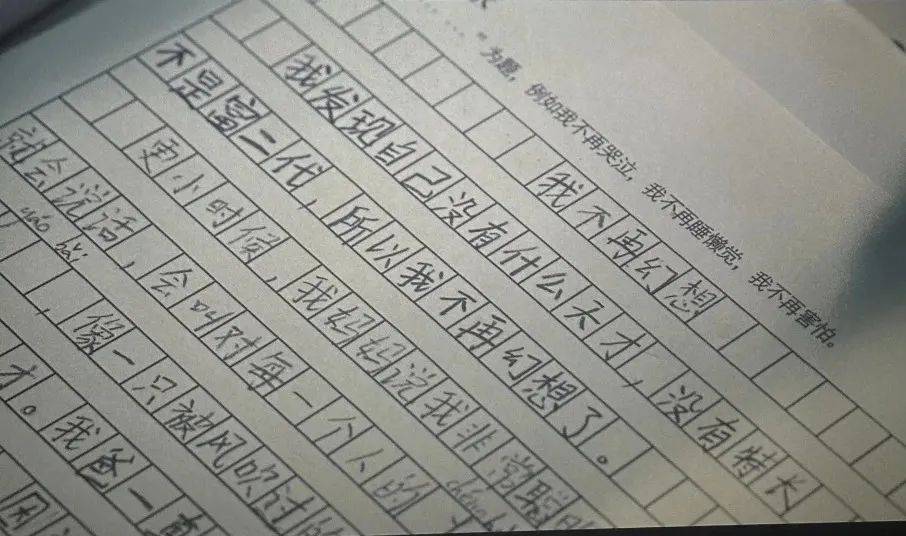 "为题，例如我不再哭泣，我不再睡懒觉，我不再害怕。
我不再幻想
我发现自己没有什么天才，没有特长
不是富二代，所以我不再幻想了。
更小时候，我妈妈说我非常聪
就会说话，会叫对每一个人的
yáo bǎi
，像一只被风吹过的
才。我爸一直
困